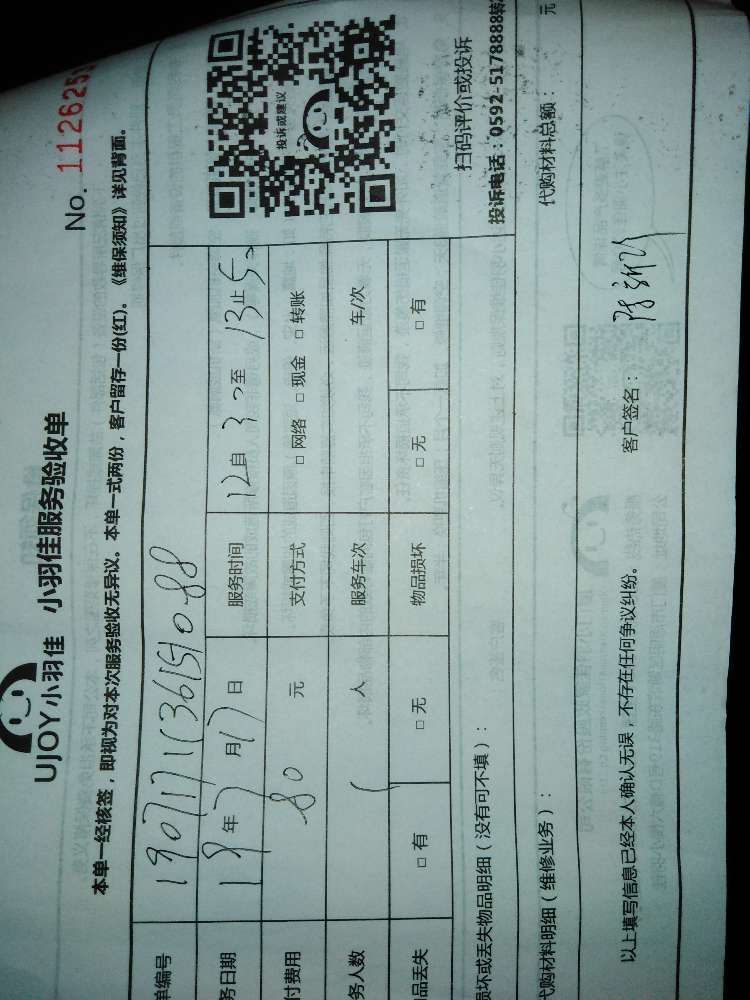 UJOY小羽佳 小羽佳服务验收单
No. 1126259
本单一经核签，即视为对本次服务验收无异议。本单一式两份，客户留存一份(红)。《维保须知》详见背面。
单编号 1907171136151088
务日期 19年7月17日 服务时间 12自30至13止5
付费用 80 元 支付方式 □ 网络 □ 现金 □ 转账
务人数 1 人 服务车次 车/次
品丢失 □ 有 □ 无 物品损坏 □ 无 □ 有
投诉或建议
扫码评价或投诉
投诉电话：0592-5178888转
损坏或丢失物品明细（没有可不填）：
代购材料明细（维修业务）： 代购材料总额： 元
以上填写信息已经本人确认无误，不存在任何争议纠纷。 客户签名：